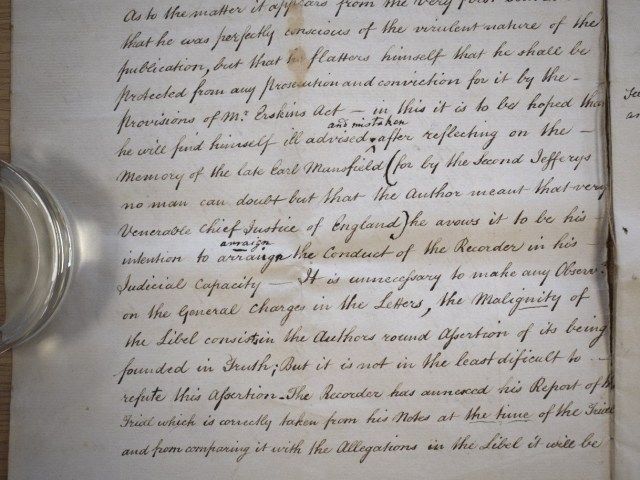 As to the matter it appears from the very first
that he was perfectly conscious of the virulent nature of the
publication, but that he flatters himself that he shall be
protected from any Prosecution and conviction for it by the -
provisions of Mr. Erskins Act — in this it is to be hoped that
and mistaken
he will find himself ill advised ^ after reflecting on the -
Memory of the late Earl Mansfield (for by the Second Jefferys
no man can doubt but that the Author meant that very
Venerable Chief Justice of England) he avows it to be his
arraign
intention to arrange the Conduct of the Recorder in his
Judicial Capacity — It is unnecessary to make any Observ.
on the General Charges in the Letters, the Malignity of
the Libel consists in the Authors round Assertion of its being
founded in Truth; But it is not in the least dificult to -
refute this Assertion - The Recorder has annexed his Report of the
Trial which is correctly taken from his Notes at the time of the Trial
and from comparing it with the Allegations in the Libel it will be